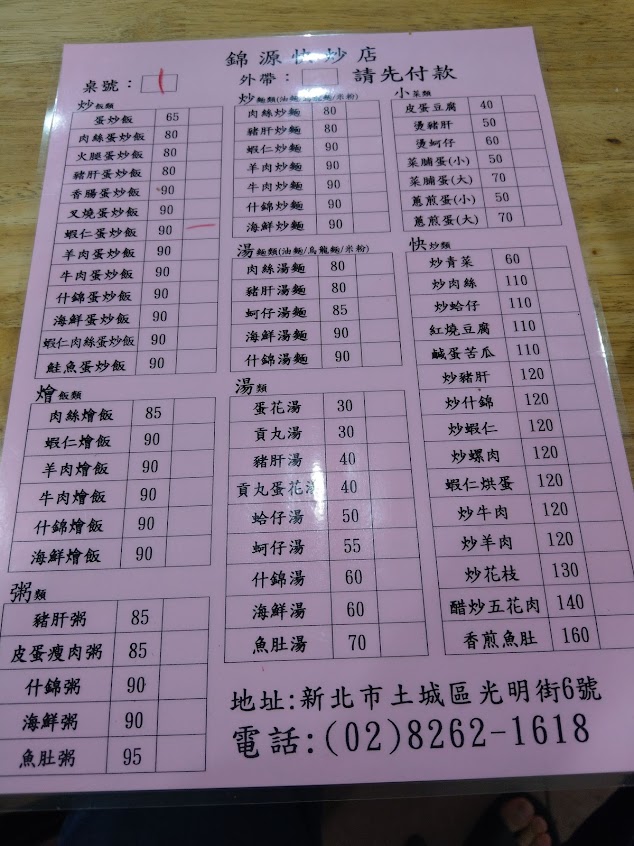 錦源快炒店
桌號： 外帶： 請先付款
炒飯類
蛋炒飯 65
肉絲蛋炒飯 80
火腿蛋炒飯 80
豬肝蛋炒飯 80
香腸蛋炒飯 90
叉燒蛋炒飯 90
蝦仁蛋炒飯 90
羊肉蛋炒飯 90
牛肉蛋炒飯 90
什錦蛋炒飯 90
海鮮蛋炒飯 90
蝦仁肉絲蛋炒飯 90
鮭魚蛋炒飯 90
燴飯類
肉絲燴飯 85
蝦仁燴飯 90
羊肉燴飯 90
牛肉燴飯 90
什錦燴飯 90
海鮮燴飯 90
粥類
豬肝粥 85
皮蛋瘦肉粥 85
什錦粥 90
海鮮粥 90
魚肚粥 95
炒麵類(油麵/烏龍麵/米粉)
肉絲炒麵 80
豬肝炒麵 80
蝦仁炒麵 90
羊肉炒麵 90
牛肉炒麵 90
什錦炒麵 90
海鮮炒麵 90
湯麵類(油麵/烏龍麵/米粉)
肉絲湯麵 80
豬肝湯麵 80
蚵仔湯麵 85
海鮮湯麵 90
什錦湯麵 90
湯類
蛋花湯 30
貢丸湯 30
豬肝湯 40
貢丸蛋花湯 40
蛤仔湯 50
蚵仔湯 55
什錦湯 60
海鮮湯 60
魚肚湯 70
小菜類
皮蛋豆腐 40
燙豬肝 50
燙蚵仔 60
菜脯蛋(小) 50
菜脯蛋(大) 70
蔥煎蛋(小) 50
蔥煎蛋(大) 70
快炒類
炒青菜 60
炒肉絲 110
炒蛤仔 110
紅燒豆腐 110
鹹蛋苦瓜 110
炒豬肝 120
炒什錦 120
炒蝦仁 120
炒螺肉 120
蝦仁烘蛋 120
炒牛肉 120
炒羊肉 120
炒花枝 130
醋炒五花肉 140
香煎魚肚 160
地址:新北市土城區光明街6號
電話:(02)8262-1618